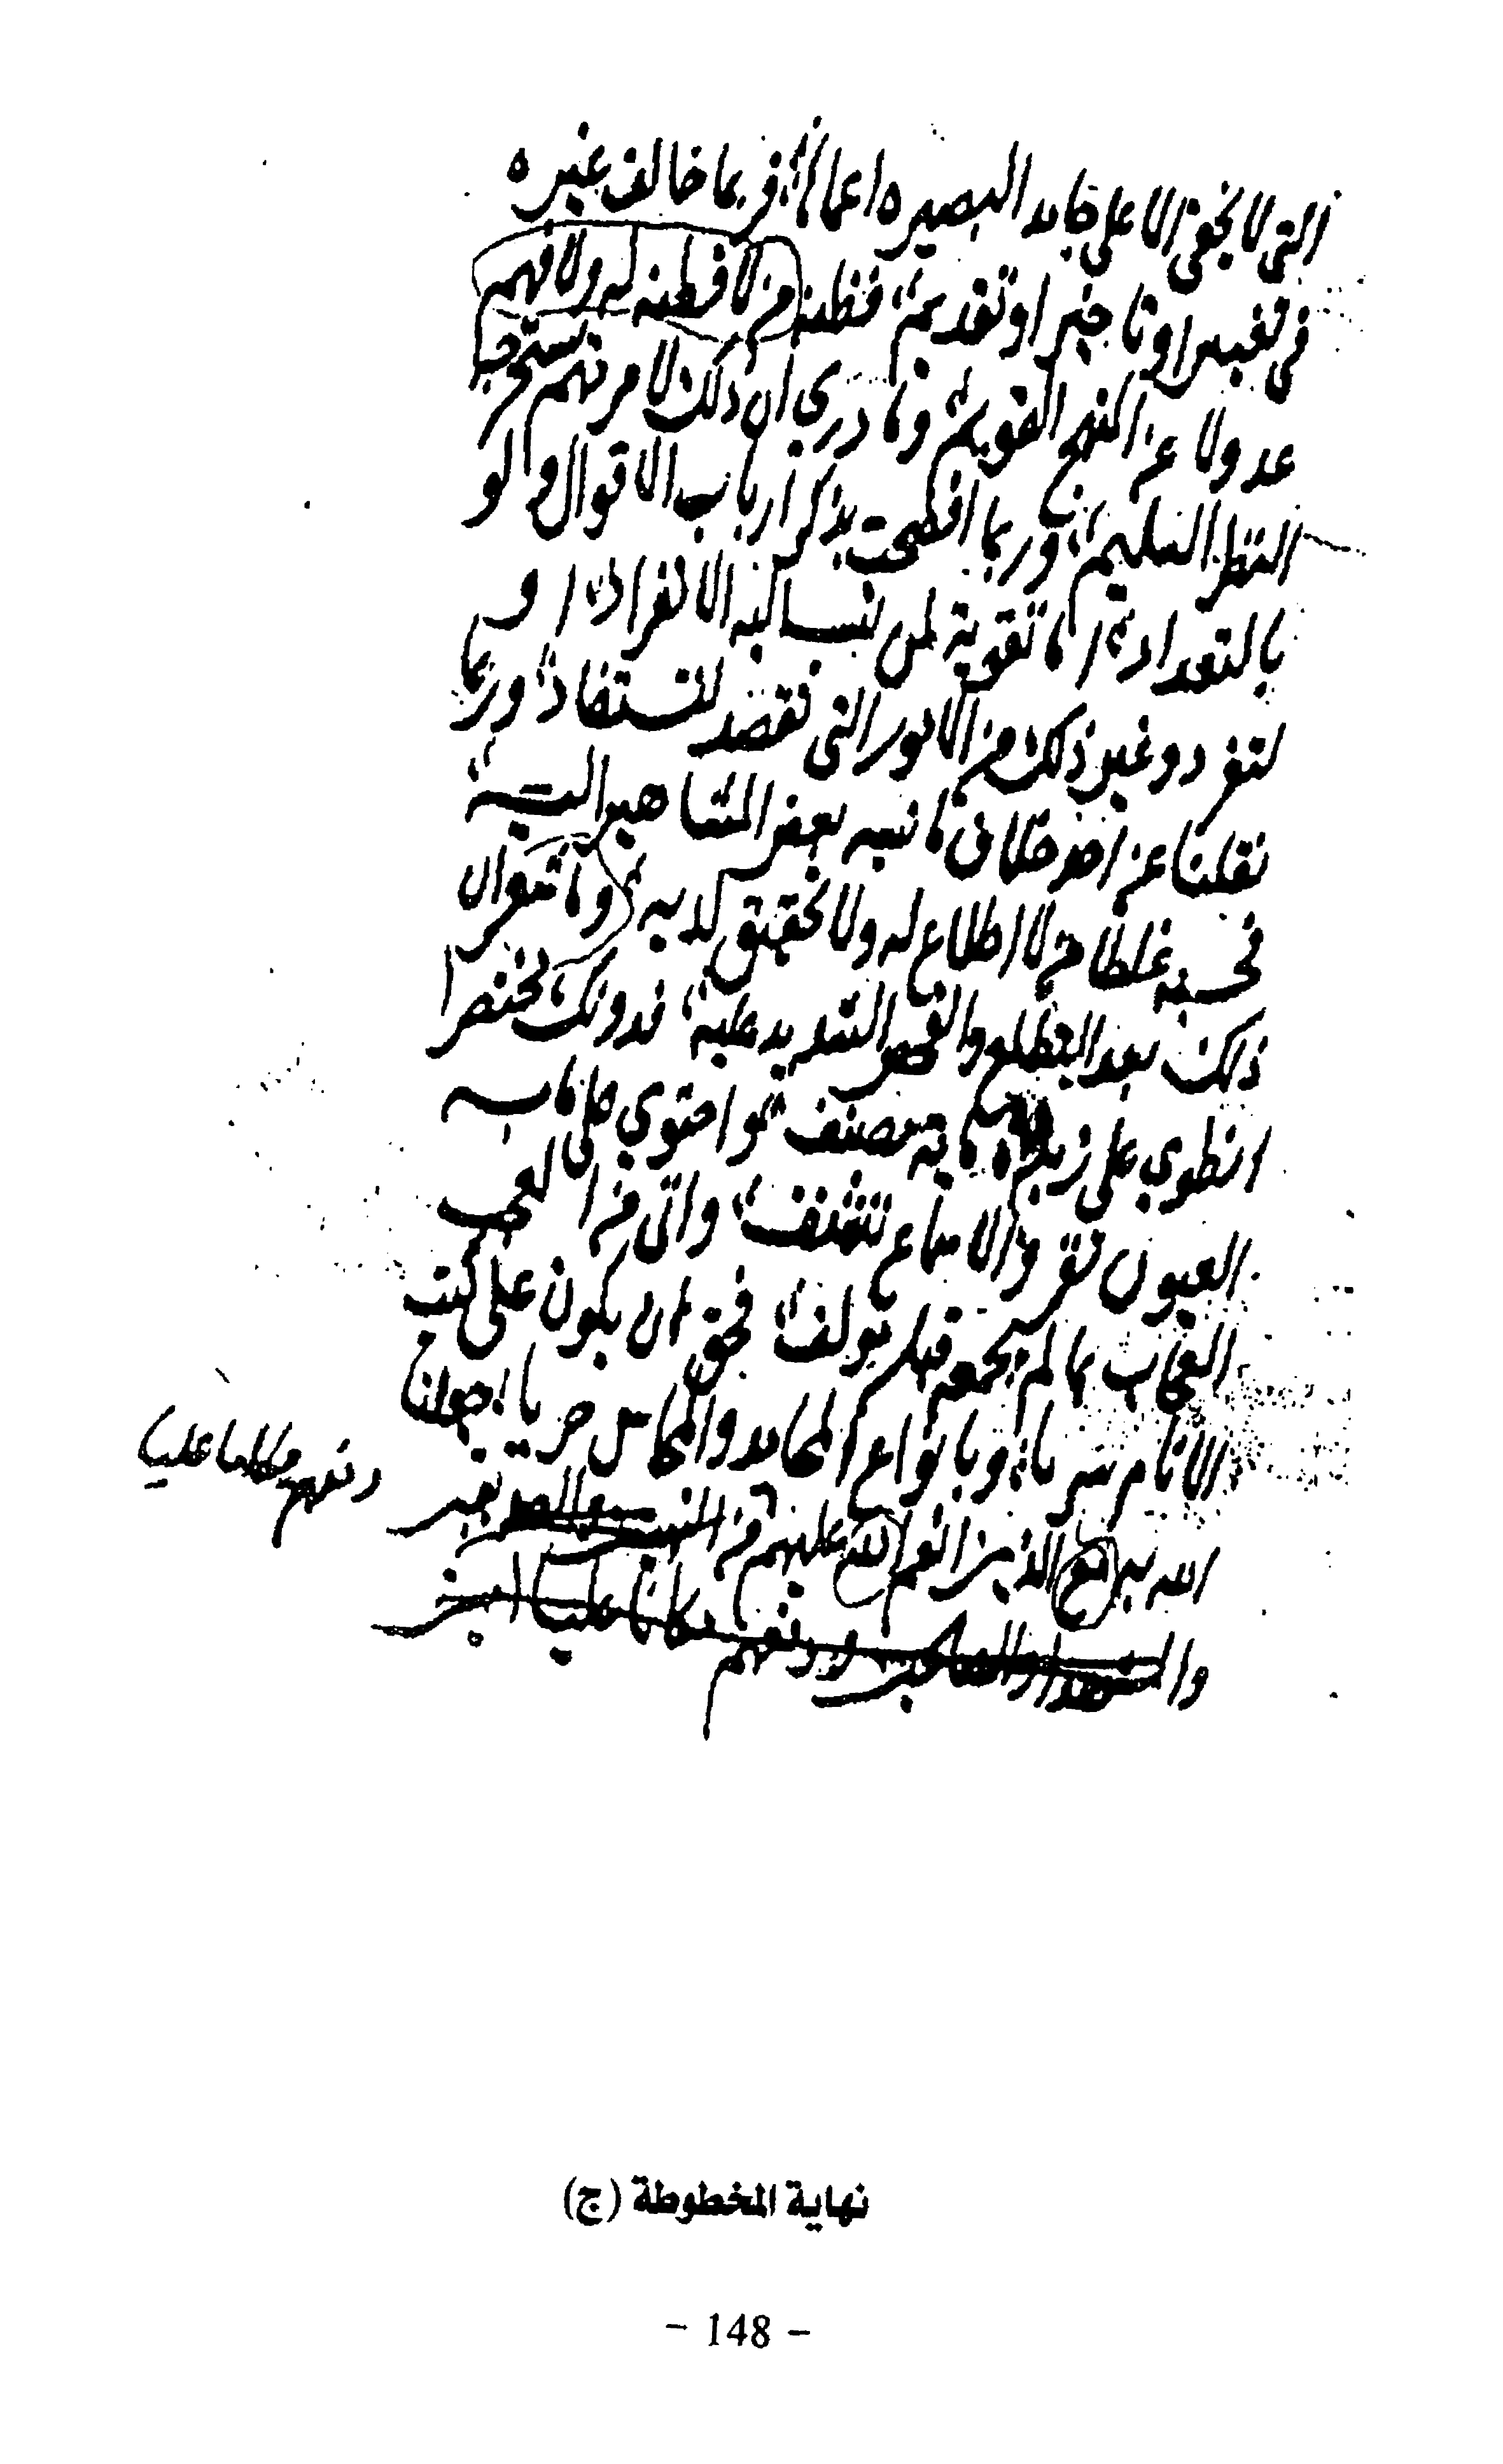 التى لا تخفى الا على جامد البصيره اعمى وربما خالف غيره
فى تعبير او تاخير او تقديم فظنه من لا فطنه له ولا فهم
عدولا عن النهج القويم وما درى ان ذلك لامر مهم يستخرجه
النظر السليم وربما افصحت بذكر ارباب الاقوال ولو
بالتعداد اما تقوية لمن نسب اليه الانفراد او
لتفرد وغير ذلك من الامور التى تقصد لتستفاد وربما
نقلنا عن احد خلاف ما نسبه بعض المشاهير اليه
فحسبه غلطا من لا اطلاع له ولا تحقيق لديه وما شعر ان
ذلك بعد التطلع والفحص الشديد عليه فدونك مختصرا
انطوى على زبد مصنف احتوى على ما به
العيون تقر والاسماع تشنف واتى من العجب
العجاب بما لم يجمعه قبله مولف فحق ان يكون على كتب
الانام سريا وبانواع المحامد والمحاسن حريا جعلنا
الله به مع الذين انعم الله عليهم من النبيين والصديقين
والشهداء والصالحين ورفعهم مكانا عليا امين
ورفعهم مكانا عليا
نهاية المخطوطة (ج)
- 148 -